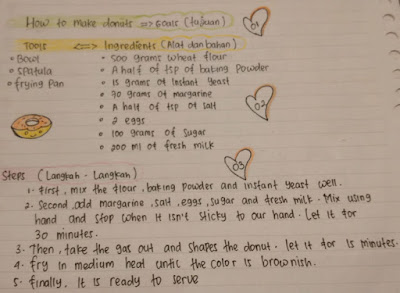 How to make donuts => Goals (tujuan)
01
Tools <=> Ingredients (Alat dan bahan)
• Bowl • 500 grams wheat flour
• spatula • A half of tsp of baking powder
• frying pan • 15 grams of instant yeast
• 70 grams of margarine
• A half of tsp of salt
02
• 2 eggs
• 100 grams of sugar
• 200 ml of fresh milk
03
Steps (Langkah - Langkah)
1. First, mix the flour, baking powder and instant yeast well.
2. Second, add margarine, salt, eggs, sugar and fresh milk. Mix using
hand and stop when it isn't sticky to our hand. Let it for
30 minutes.
3. Then, take the gas out and shapes the donut. let it for 15 minutes.
4. fry in medium heat until the color is brownish.
5. finally, it is ready to serve